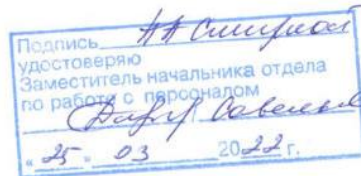 Подпись АА Смирнов
удостоверяю
Заместитель начальника отдела
по работе с персоналом
"25" 03 2022 г.